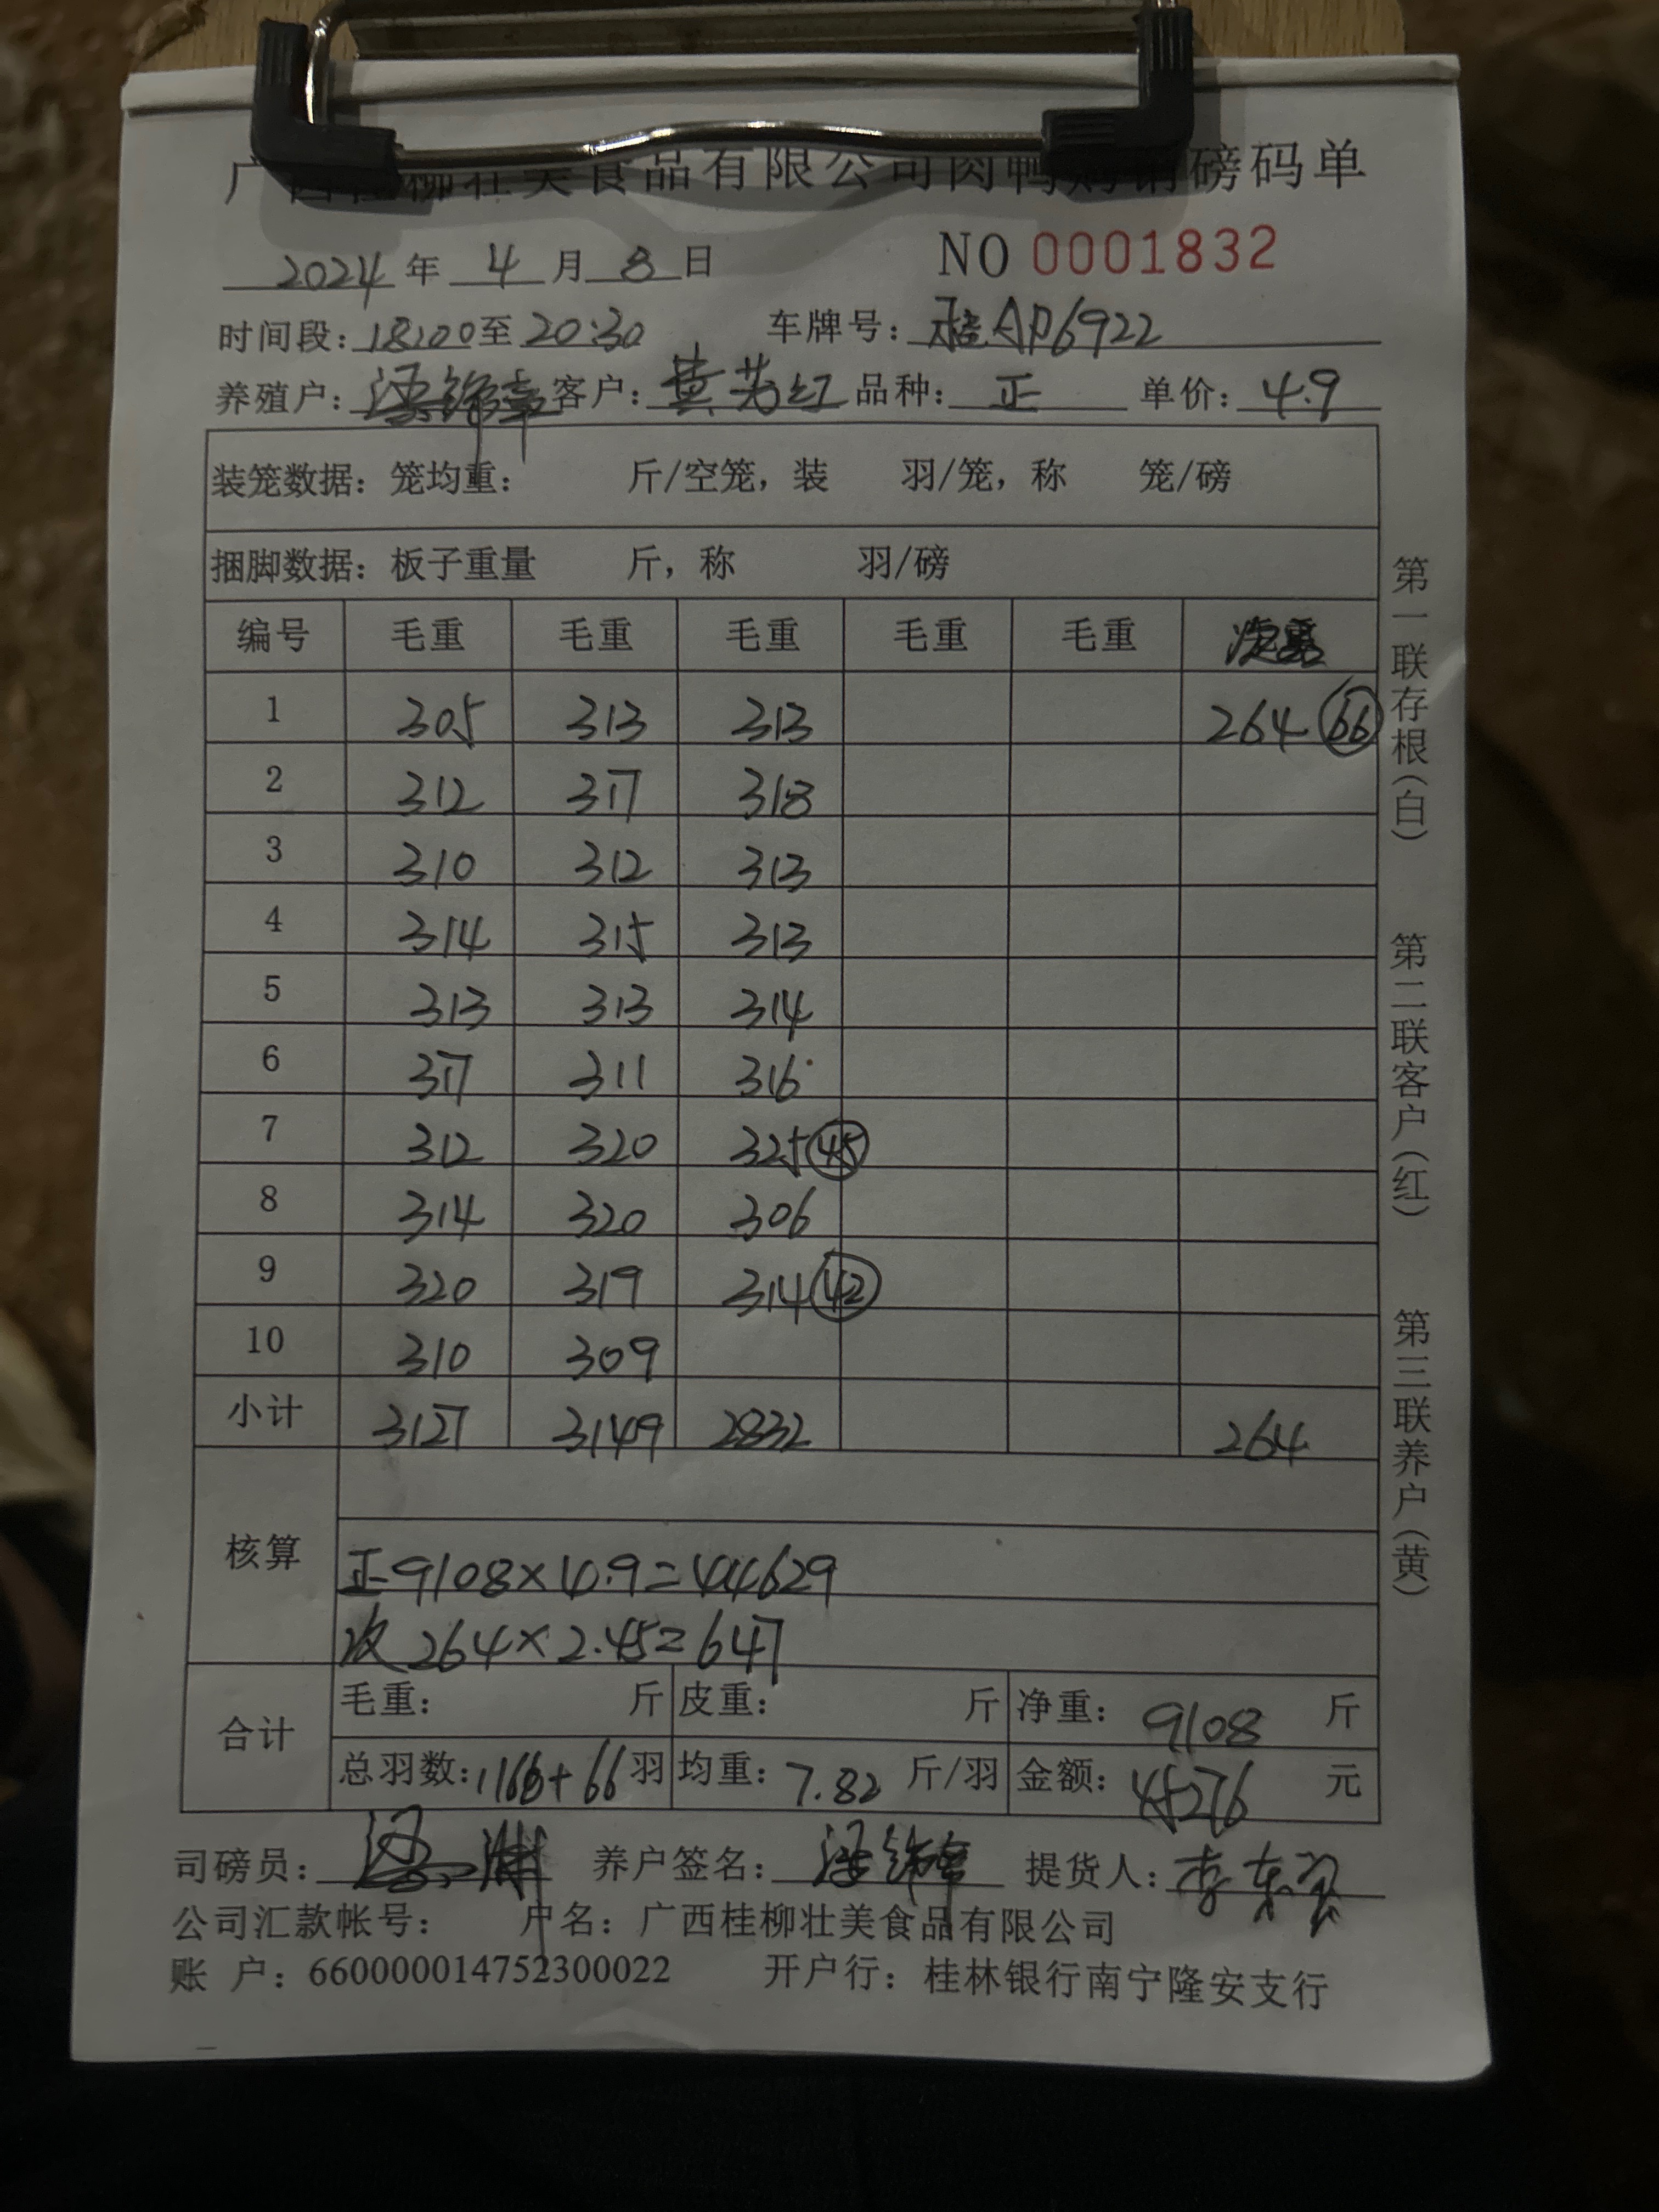 广西桂柳壮美食品有限公司肉鸭购销磅码单
2024年 4月 8日 NO 0001832
时间段：18:00至20:30 车牌号：桂AP6922
养殖户： 客户：黄芳红 品种：正 单价：4.9
装笼数据：笼均重： 斤/空笼，装 羽/笼，称 笼/磅
捆脚数据：板子重量 斤，称 羽/磅
编号 毛重 毛重 毛重 毛重 毛重
1 305 313 313 264 66
2 312 317 318
3 310 312 313
4 314 315 313
5 313 313 314
6 317 311 316
7 312 320 325 45
8 314 320 306
9 320 319 314 42
10 310 309
小计 3127 3149 2832 264
核算
正 9108×4.9=44629
次 264×2.45=647
合计
毛重： 斤 皮重： 斤 净重：9108 斤
总羽数：1166+66羽 均重：7.82 斤/羽 金额：45276 元
司磅员： 养户签名： 提货人：
公司汇款帐号： 户名：广西桂柳壮美食品有限公司
账 户：660000014752300022 开户行：桂林银行南宁隆安支行
第一联存根（白）
第二联客户（红）
第三联养户（黄）